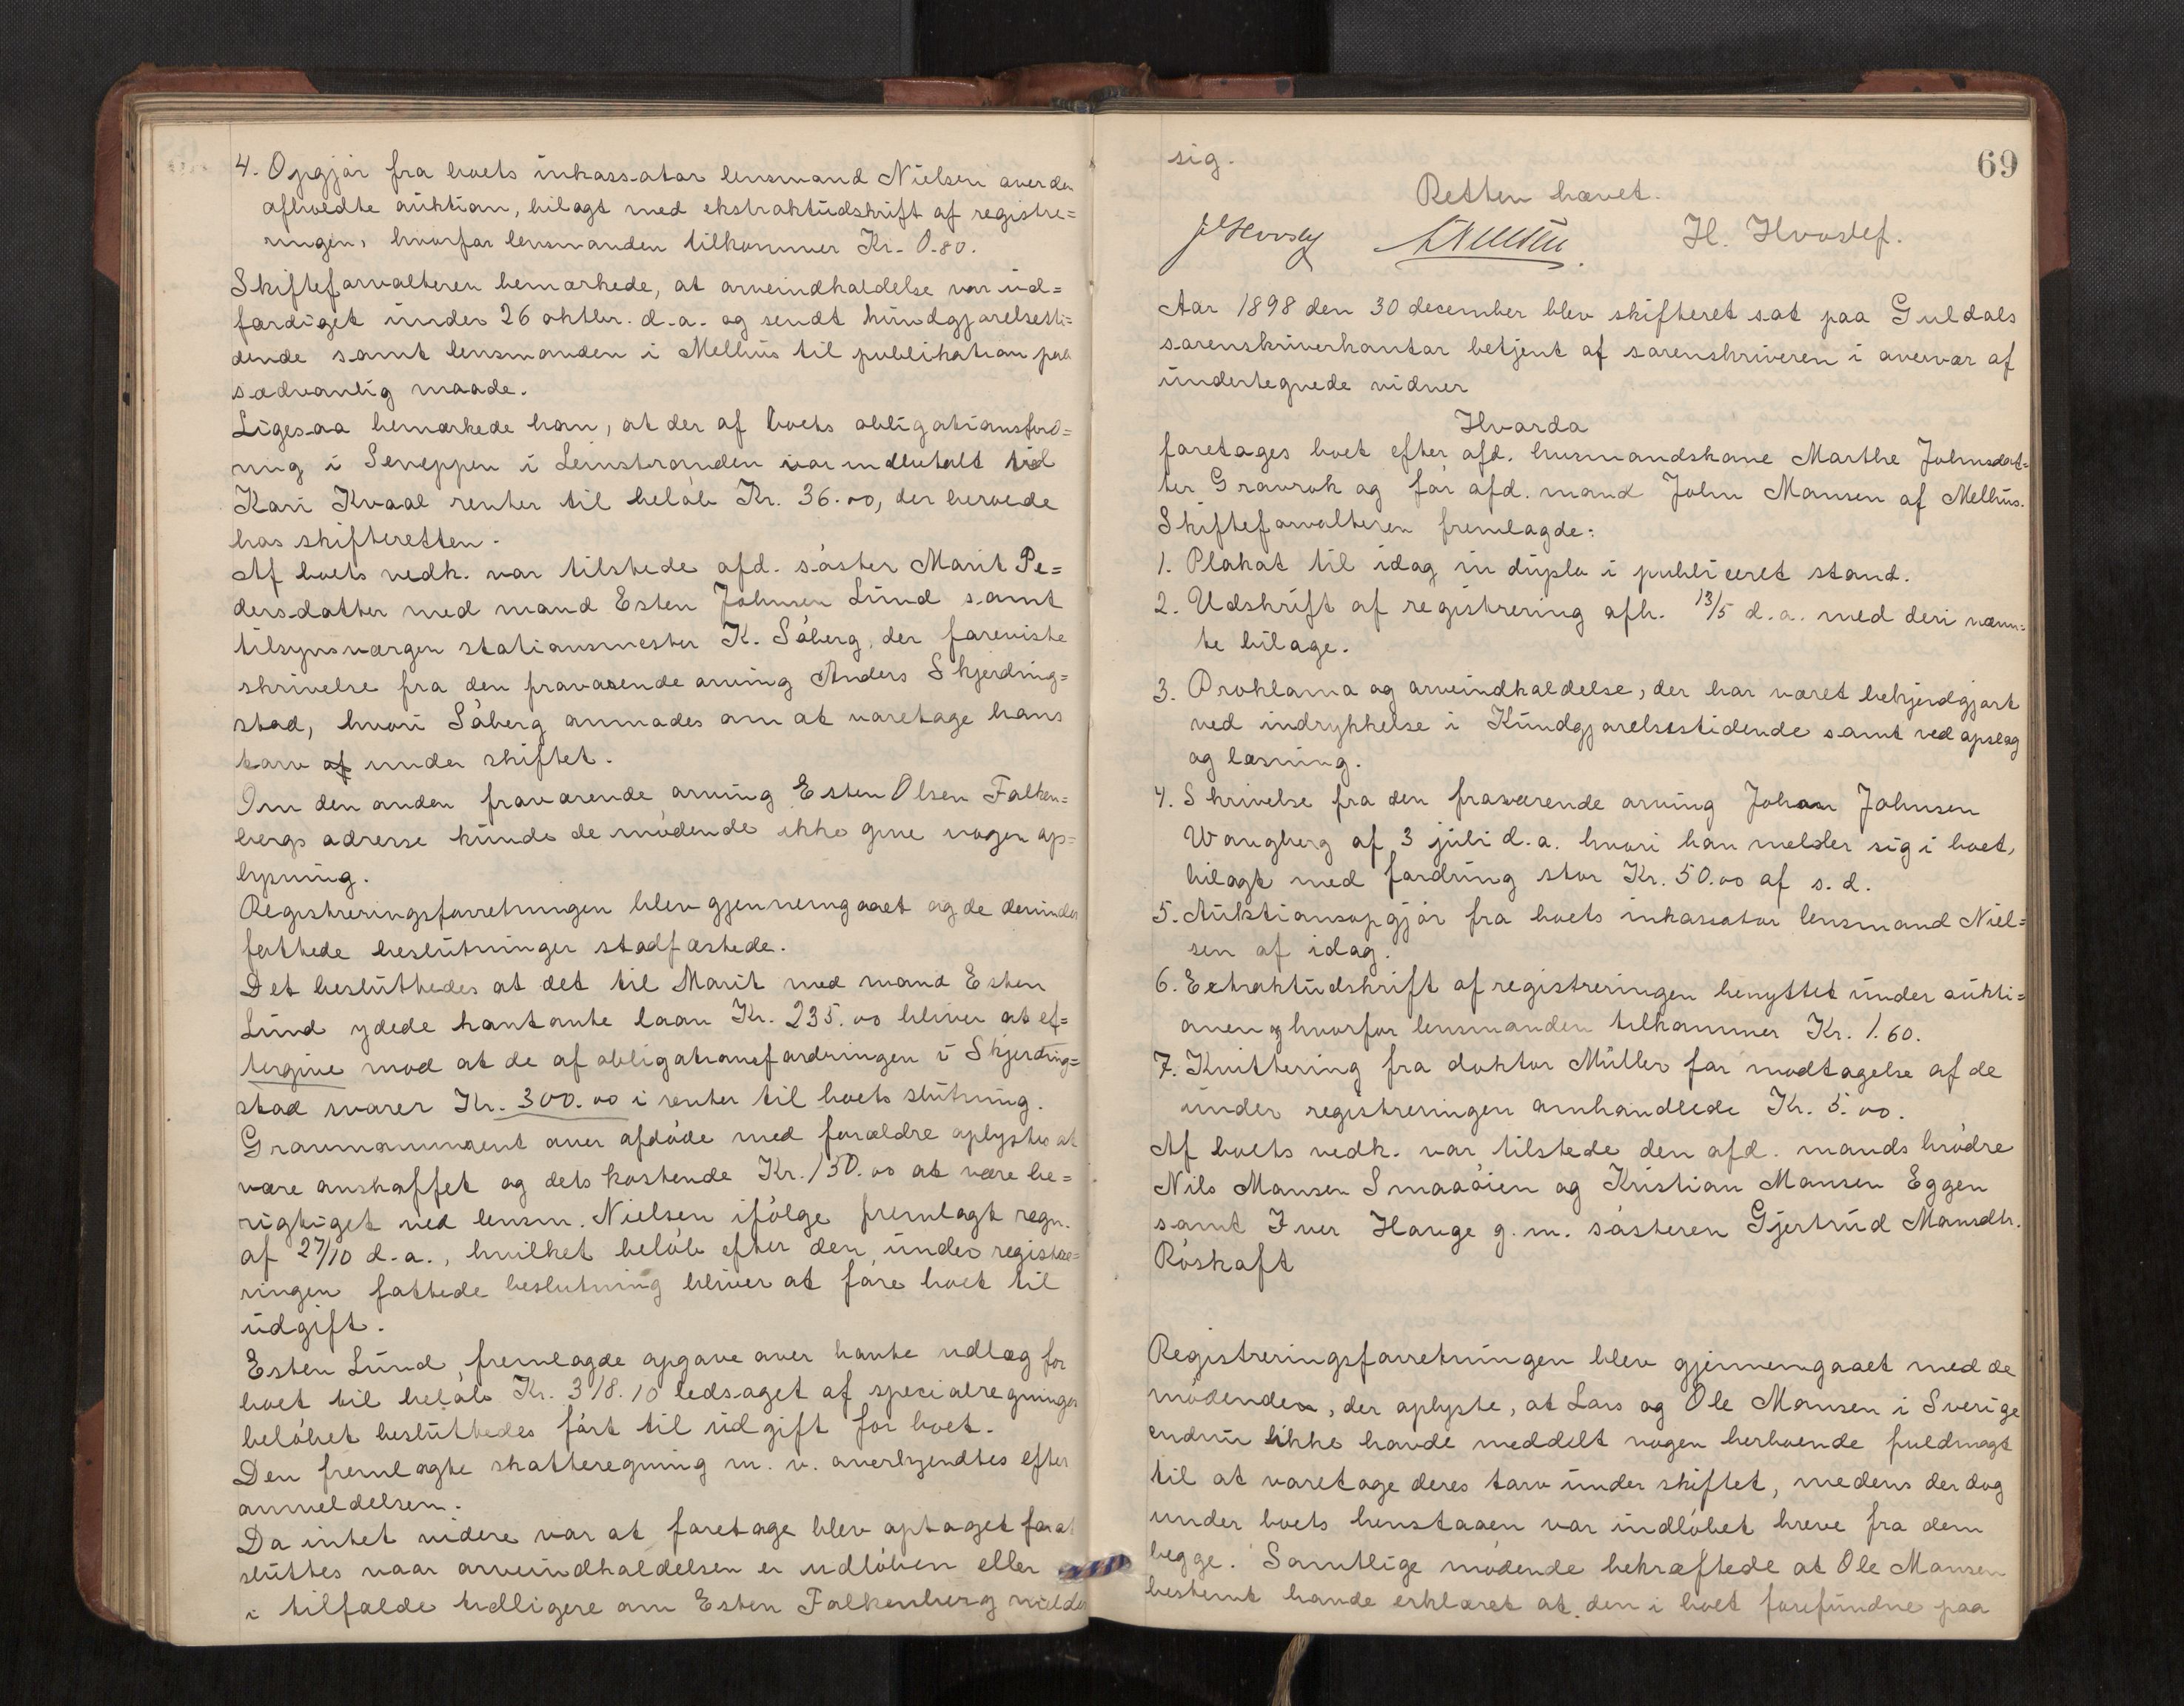 4. Opgjør fra boets inkassator lensmand Nielsen over den
afholdte auktion, bilagt med ekstraktudskrift af registre=
ringen, hvorfor lensmanden tilkommer Kr. 0.80.
Skifteforvalteren bemærkede, at arveindkaldelse var ud=
færdiget under 26 oktbr. d.a. og sendt kundgjørelsesti=
dende samt lensmanden i Melhus til publikation paa
sædvanlig maade.
Ligesaa bemærkede han, at der af boets obligationsford=
ring i Seveppen i Leinstranden var indbetalt ved
Kari Kvaal renter til beløb Kr. 36.00, der beroede
hos skifteretten.
Af boets vedk. var tilstede afd. søster Marit Pe=
dersdatter med mand Esten Johnsen Lund samt
tilsynsværgen stationsmester K. Søberg, der foreviste
skrivelse fra den fraværende arving Anders Skjerding=
stad, hvori Søberg anmodes om at varetage hans
tarv af under skiftet.
Om den anden fraværende arving Esten Olsen Falken=
bergs adresse kunde de mødende ikke give nogen op=
lysning.
Registreringsforretningen blev gjennemgaaet og de derunder
fattede beslutninger stadfæstede.
Det besluttedes at det til Marit med mand Esten
Lund ydede kontante laan Kr. 235.00 bliver at ef=
tergive mod at de af obligationsfordringen i Skjerding=
stad svarer Kr. 300.00 i renter til boets slutning.
Gravmonument over afdøde med forældre oplystes at
være anskaffet og dets kostende Kr. 150.00 at være be=
rigtiget ved lensm. Nielsen ifølge fremlagt regn.
af 27/10 d.a., hvilket beløb efter den under registre=
ringen fattede beslutning bliver at føre boet til
udgift.
Esten Lund fremlagde opgave over havte udlæg for
boet til beløb Kr. 318.10 ledsaget af specialregninger
beløbet besluttedes ført til udgift for boet.
Den fremlagte skatteregning m. v. anerkjendtes efter
anmeldelsen.
Da intet videre var at foretage blev optaget for at
sluttes naar arveindkaldelsen er udløben eller
i tilfælde tidligere om Esten Falkenberg melder
69
sig.
Retten hævet.
H. Hvoslef.
Aar 1898 den 30 december blev skifteret sat paa Guldals
sorenskriverkontor betjent af sorenskriveren i overvær af
undertegnede vidner
Hvorda
foretages boet efter afd. husmandskone Marthe Johnsdat=
ter Gravrok og før afd. mand John Monsen af Melhus.
Skifteforvalteren fremlagde:
1. Plakat til idag in duplo i publiceret stand.
2. Udskrift af registrering afh. 13/5 d.a. med deri nævn=
te bilage.
3. Proklama og arveindkaldelse, der har været bekjendgjort
ved indrykkelse i Kundgjørelsestidende samt ved opslag
og læsning.
4. Skrivelse fra den fraværende arving Johan Johnsen
Wangberg af 3 juli d.a. hvori han melder sig i boet,
bilagt med fordring stor Kr. 50.00 af s. d.
5. Auktionsopgjør fra boets inkassator lensmand Niel=
sen af idag.
6. Extraktudskrift af registreringen benyttet under aukti=
onen og hvorfor lensmanden tilkommer Kr. 1.60.
7. Kvittering fra doktor Müller for modtagelse af de
under registreringen omhandlede Kr. 5.00.
Af boets vedk. var tilstede den afd. mands brødre
Nils Monsen Smaaøien og Kristian Monsen Eggen
samt Iver Hauge g. m. søsteren Gjertrud Monsdtr.
Røskaft
Registreringsforretningen blev gjennemgaaet med de
mødende, der oplyste, at Lars og Ole Monsen i Sverige
endnu ikke havde meddelt nogen herboende fuldmagt
til at varetage deres tarv under skiftet, medens der dog
under boets henstaaen var indløbet breve fra dem
begge. Samtlige mødende bekræftede at Ole Monsen
bestemt havde erklæret at den i boet forefundne paa